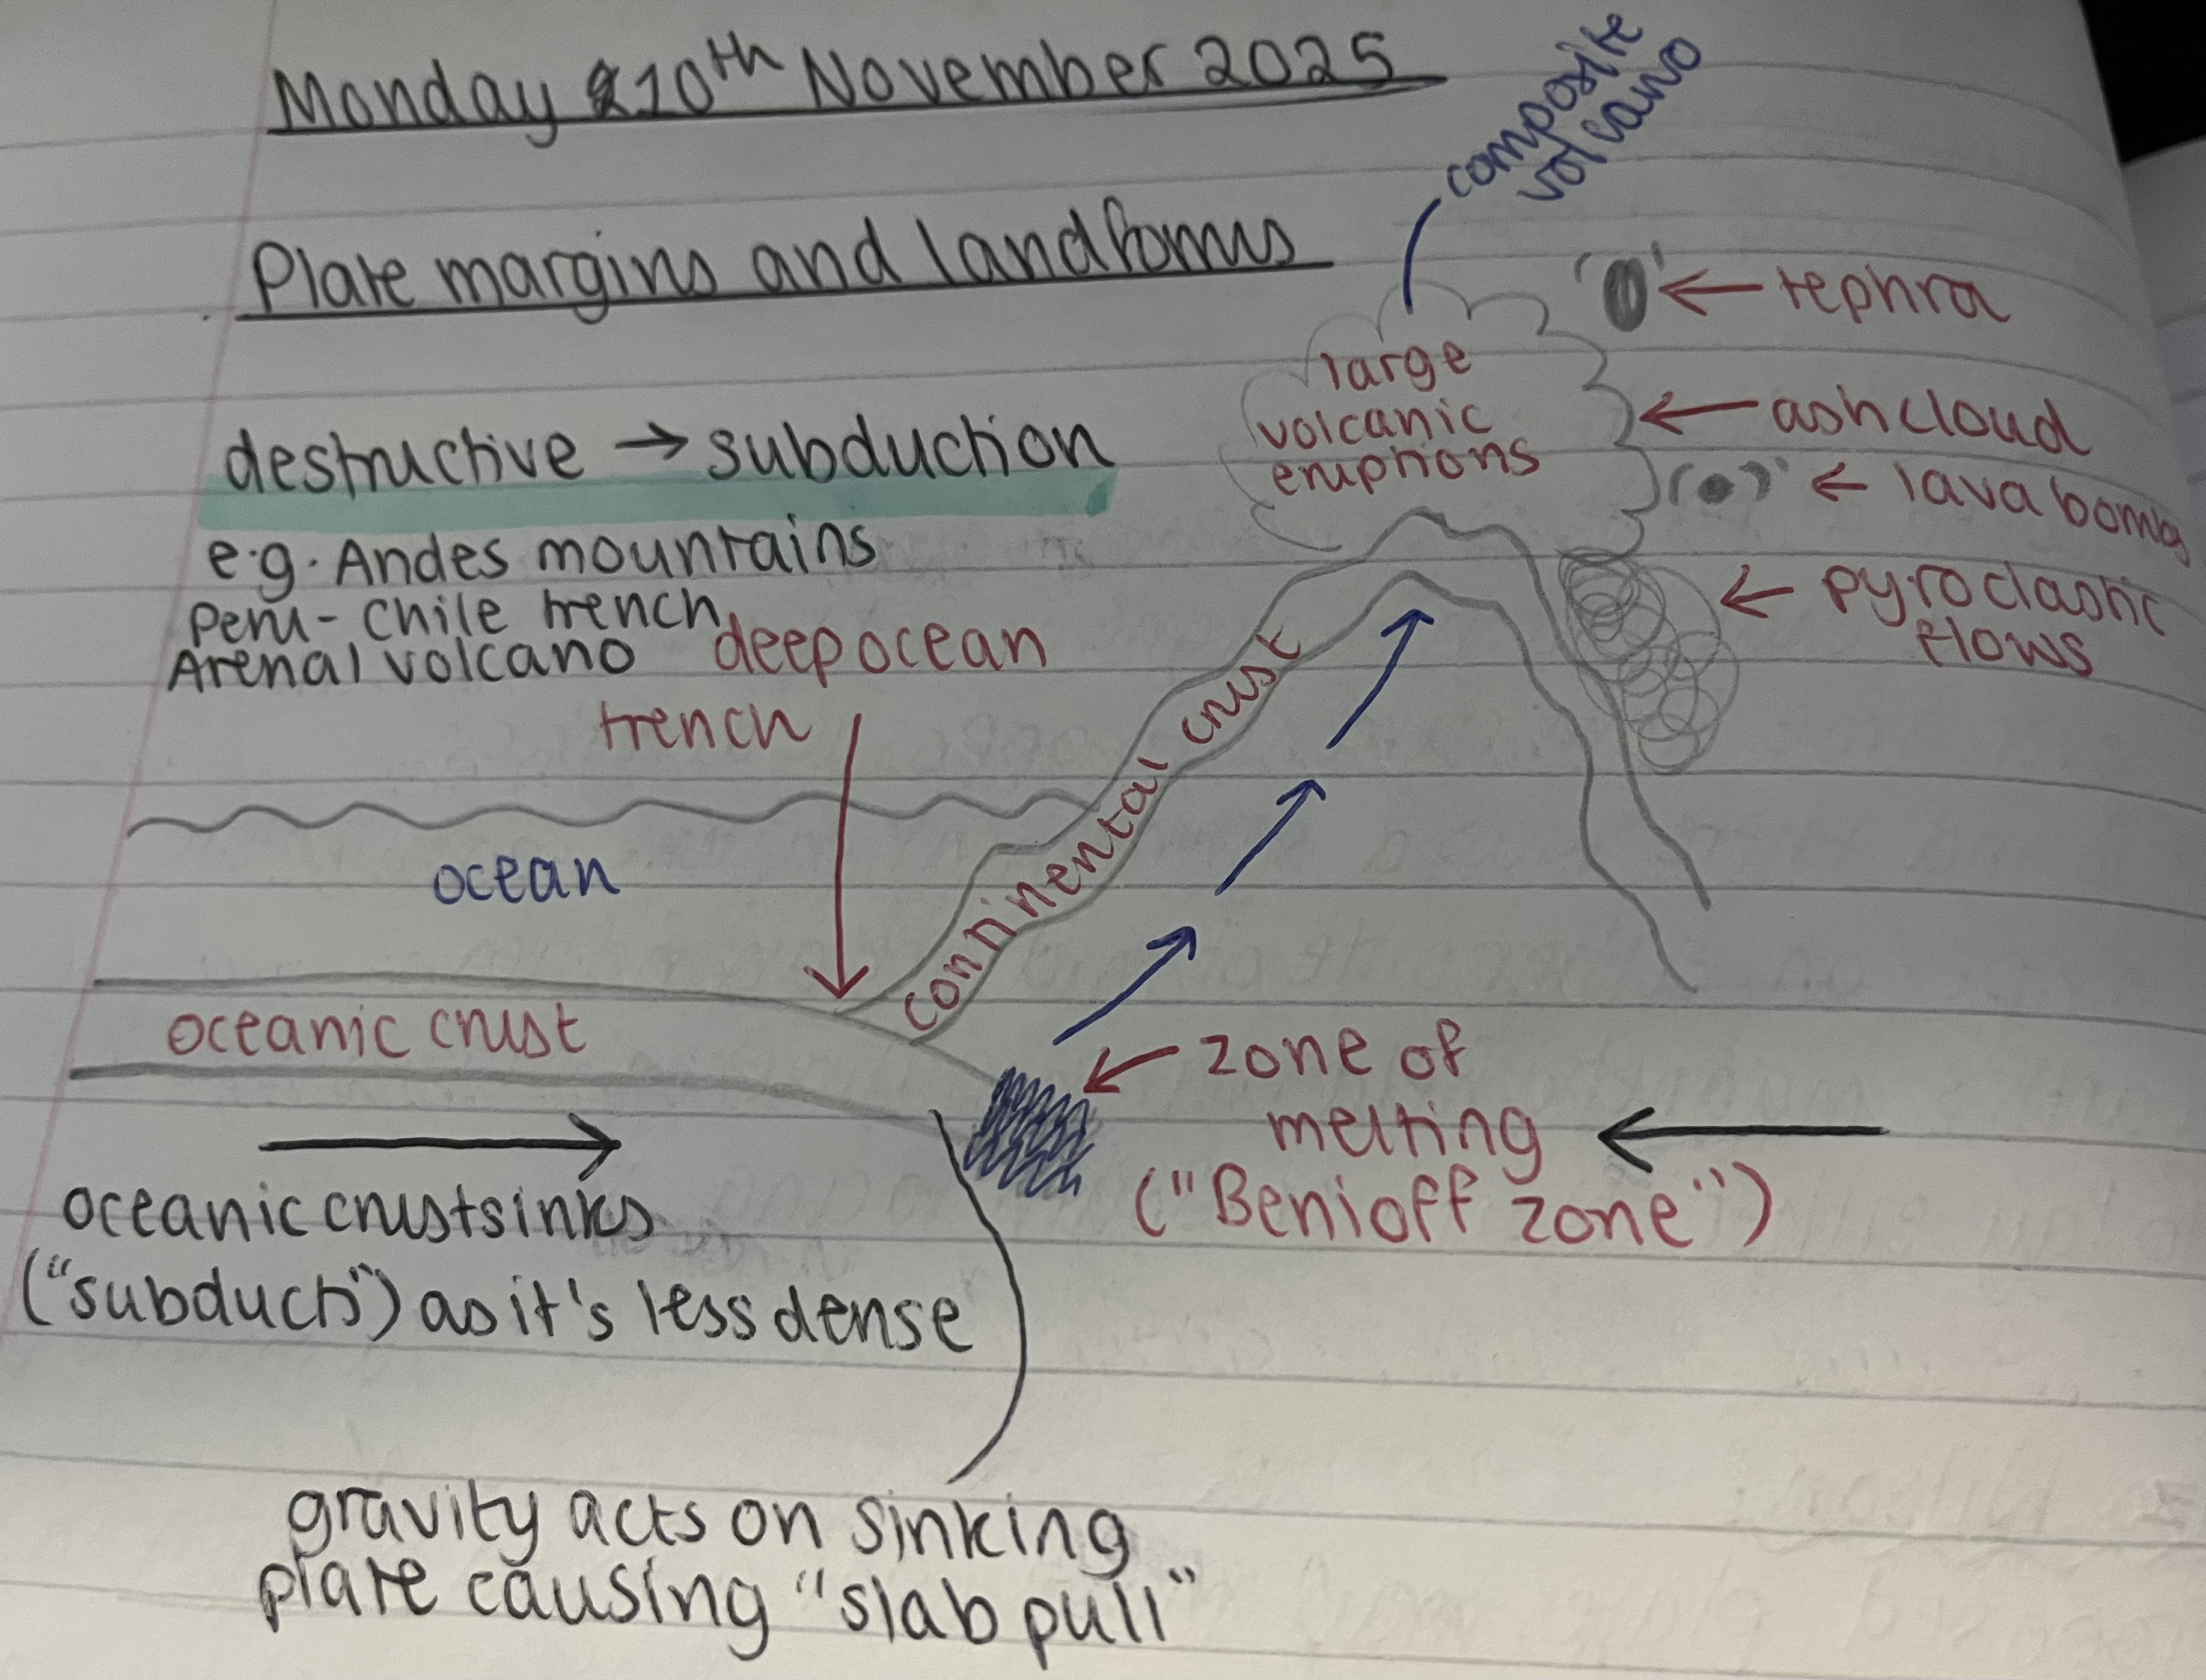 Monday 10th November 2025
composite
volcano
Plate margins and landforms
tephra
large
volcanic
eruptions
ash cloud
lava bombs
pyroclastic
flows
destructive → subduction
e.g. Andes mountains
Peru - Chile trench
Arenal volcano
deep ocean
trench
continental crust
ocean
oceanic crust
zone of
melting
("Benioff zone")
oceanic crust sinks
("subducts") as it's less dense
gravity acts on sinking
plate causing "slab pull"